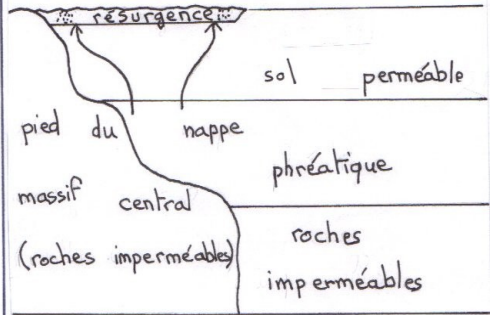 résurgence
sol perméable
pied du nappe
phréatique
massif central
roches
(roches imperméables)
imperméables